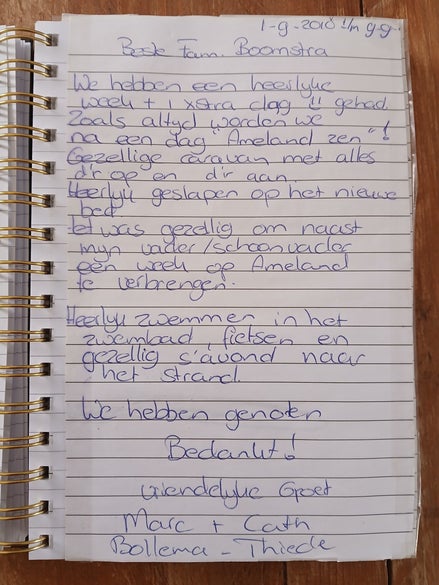 1-9-2018 t/m 9-9-
Beste Fam. Boomstra
We hebben een heerlyke
week + 1 xstra dag !! gehad.
Zoals altyd worden we
na een dag "Ameland zen"!
Gezellige caravan met alles
d'r op en d'r aan.
Heerlyk geslapen op het nieuwe
bed.
Het was gezellig om naast
myn vader/schoonvader
een week op Ameland
te verbrengen.
Heerlyk zwemmen in het
zwembad, fietsen en
gezellig s'avond naar
het strand.
We hebben genoten
Bedankt!
vriendelyke Groet
Marc + Cath
Bollema - Thiede